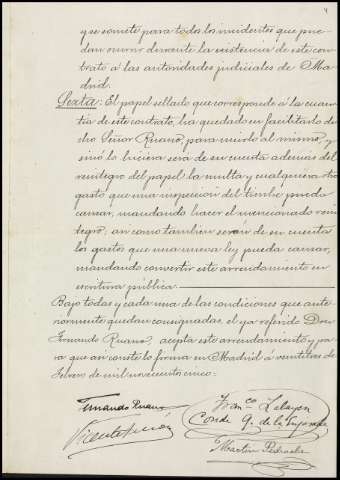 y se somete para todos los incidentes que pue-
dan ocurrir durante la existencia de este con-
trato á las autoridades judiciales de Ma-
drid.
Sexta: El papel sellado que corresponde á la cuan-
tía de este contrato, ha quedado en facilitarlo di-
cho Señor Ruano, para unirlo al mismo, y
si nó lo hiciera será de su cuenta además del
reintegro del papel la multa y cualquiera otro
gasto que una inspección del timbre pueda
causar, mandando hacer el mencionado rein-
tegro, así como también serán de su cuenta
los gastos que una nueva ley pueda causar,
mandando convertir este arrendamiento en
escritura pública.
Bajo todas y cada una de las condiciones que ante-
riormente quedan consignadas, el ya referido Don
Fernando Ruano, acepta este arrendamiento y pa-
ra que así conste lo firma en Madrid á veintitres de
Febrero de mil novecientos cinco.
Fernando Ruano
Franco Labayen
Vicente
Conde de la
Martin Pedroche